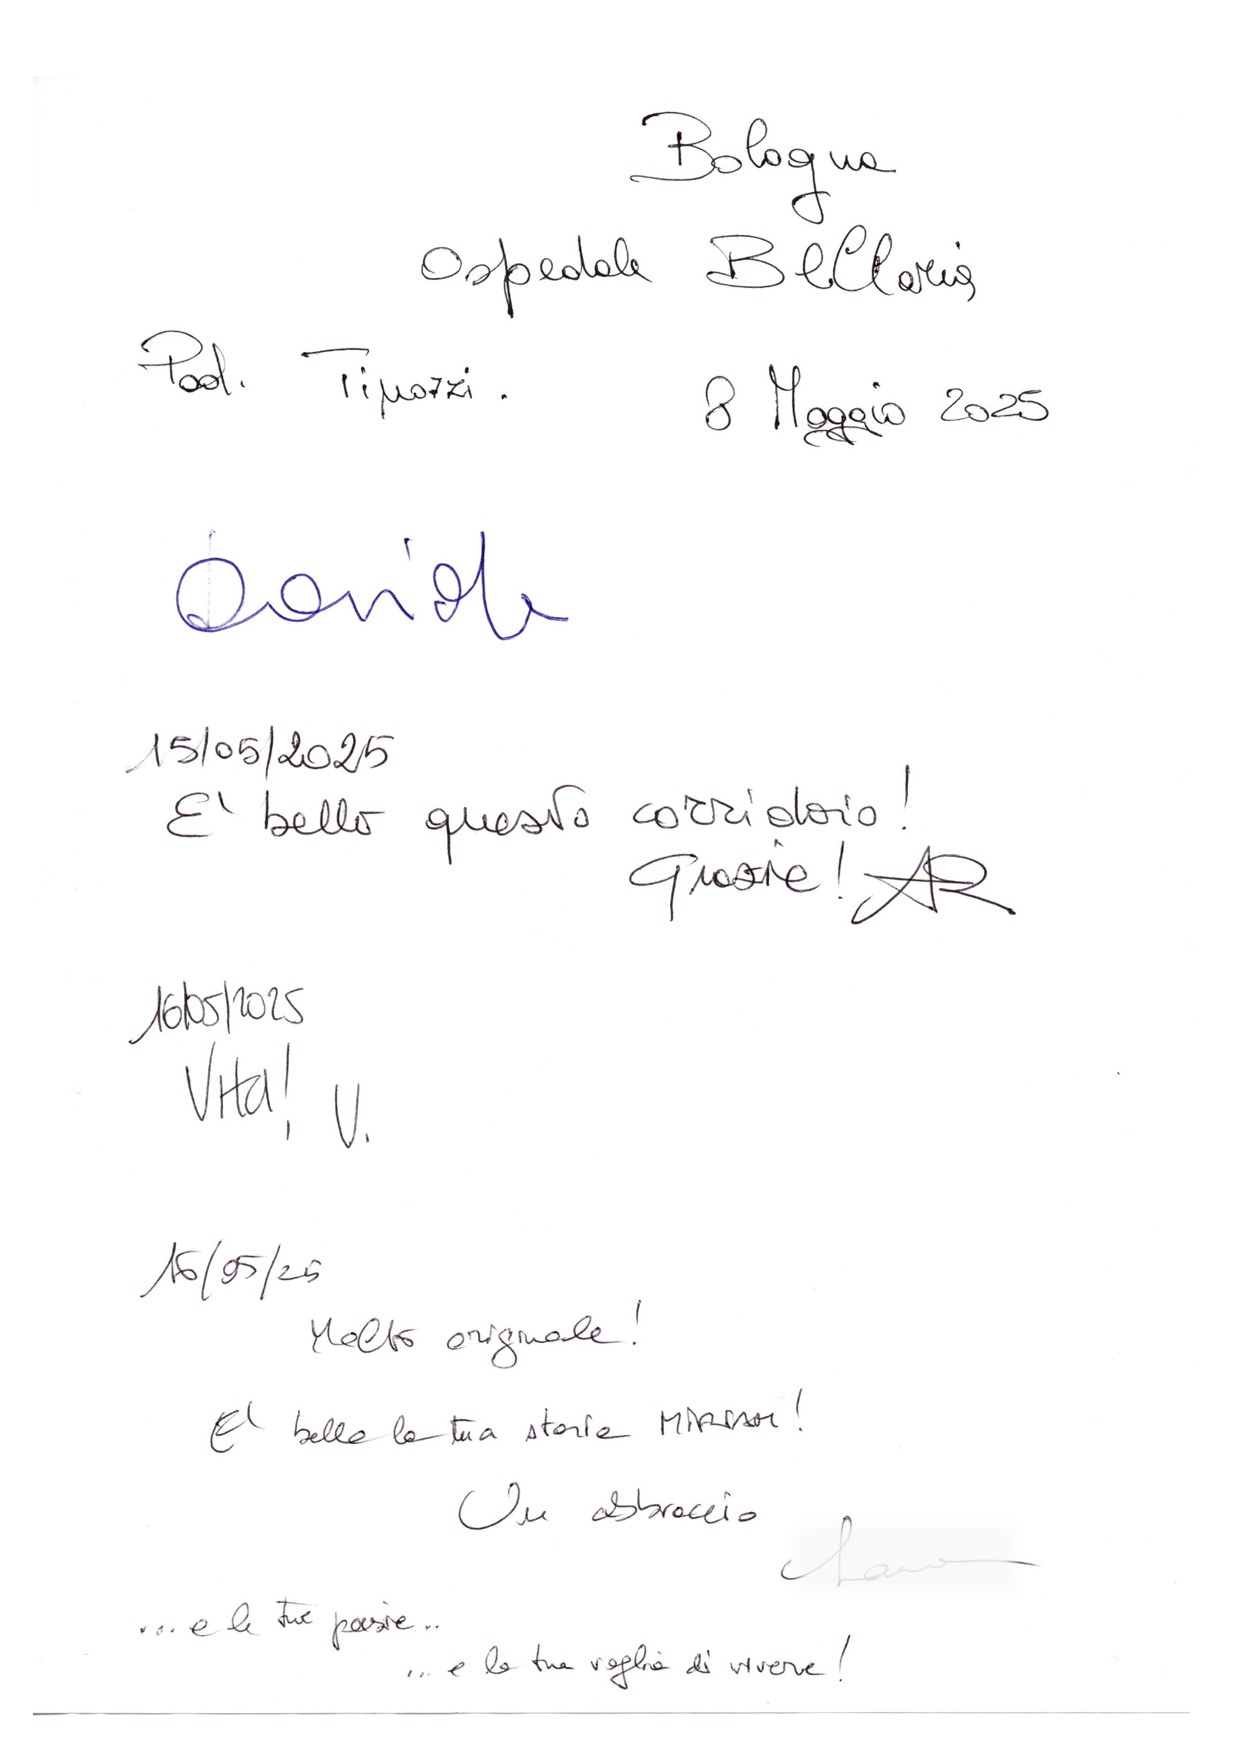 Bologna
Ospedale Bellaria
Pad. Tinozzi.
8 Maggio 2025
Daniela
15/05/2025
E' bello questo corridoio!
Grazie! AR
16/05/2025
Vita! V.
16/05/25
Molto originale!
E' bella la tua storia MIRIAM!
Un abbraccio
... e le tue poesie..
... e la tua voglia di vivere!